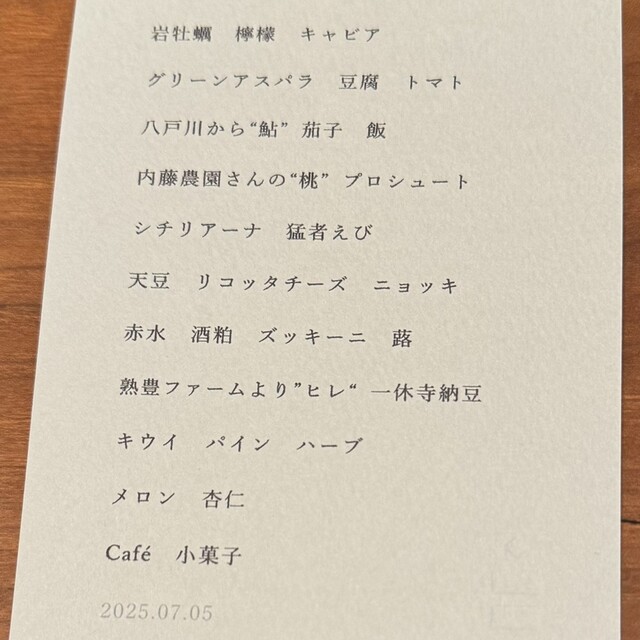 岩牡蠣　檸檬　キャビア
グリーンアスパラ　豆腐　トマト
八戸川から“鮎” 茄子　飯
内藤農園さんの“桃” プロシュート
シチリアーナ　猛者えび
天豆　リコッタチーズ　ニョッキ
赤水　酒粕　ズッキーニ　蕗
熟豊ファームより”ヒレ“ 一休寺納豆
キウイ　パイン　ハーブ
メロン　杏仁
Café　小菓子
2025.07.05